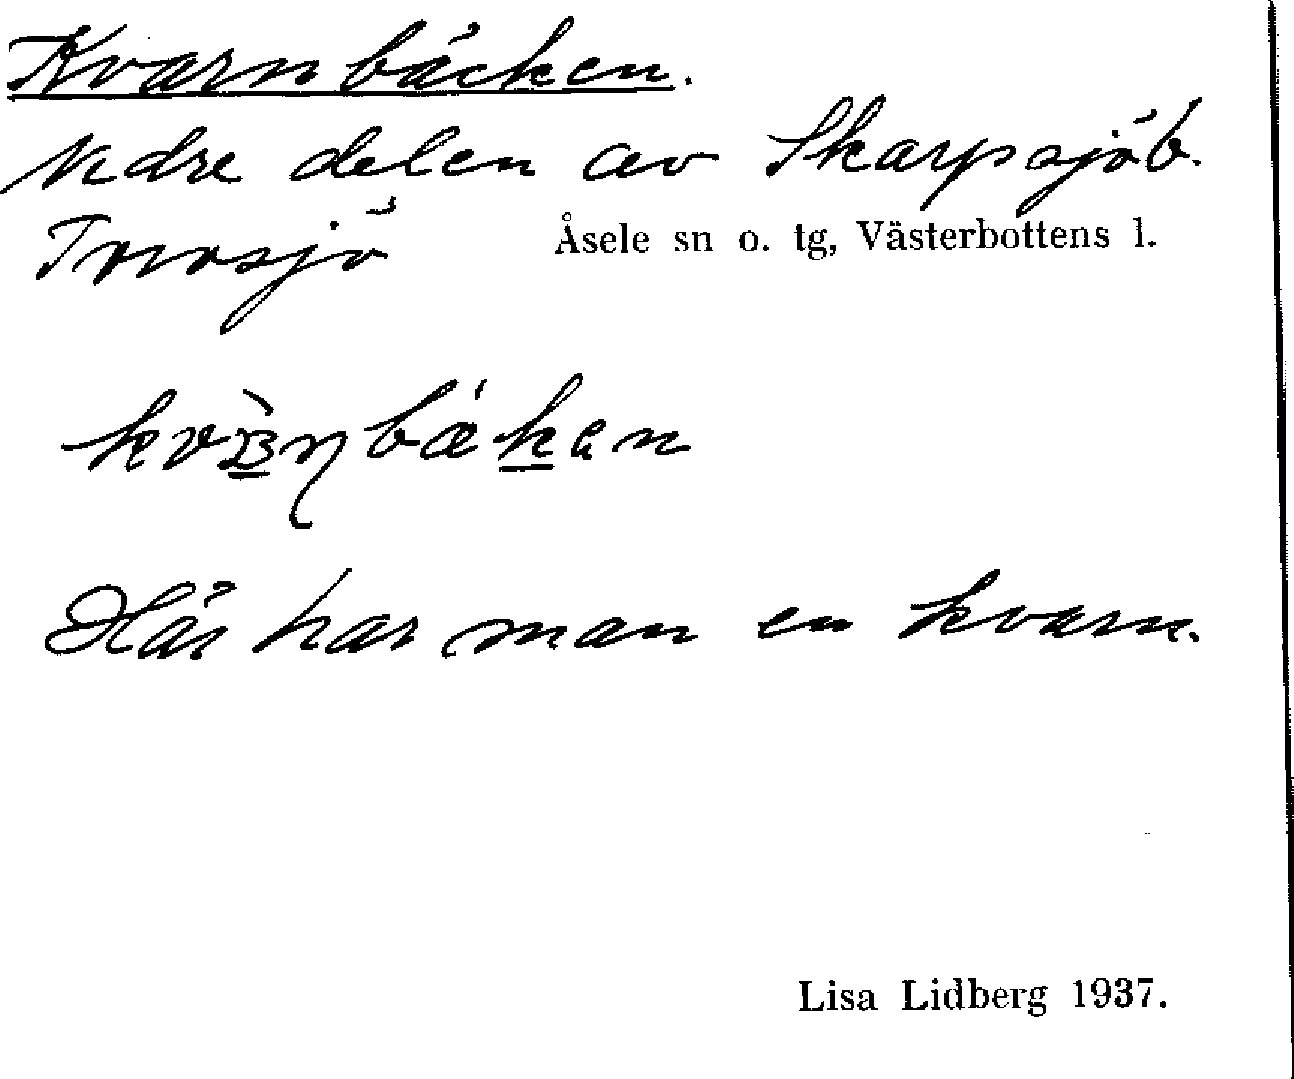 Kvarnbäcken.
Nedre delen av Skarpsjöb.
Torvsjö Åsele sn o. tg, Västerbottens l.
Här har man en kvarn.
Lisa Lidberg 1937.